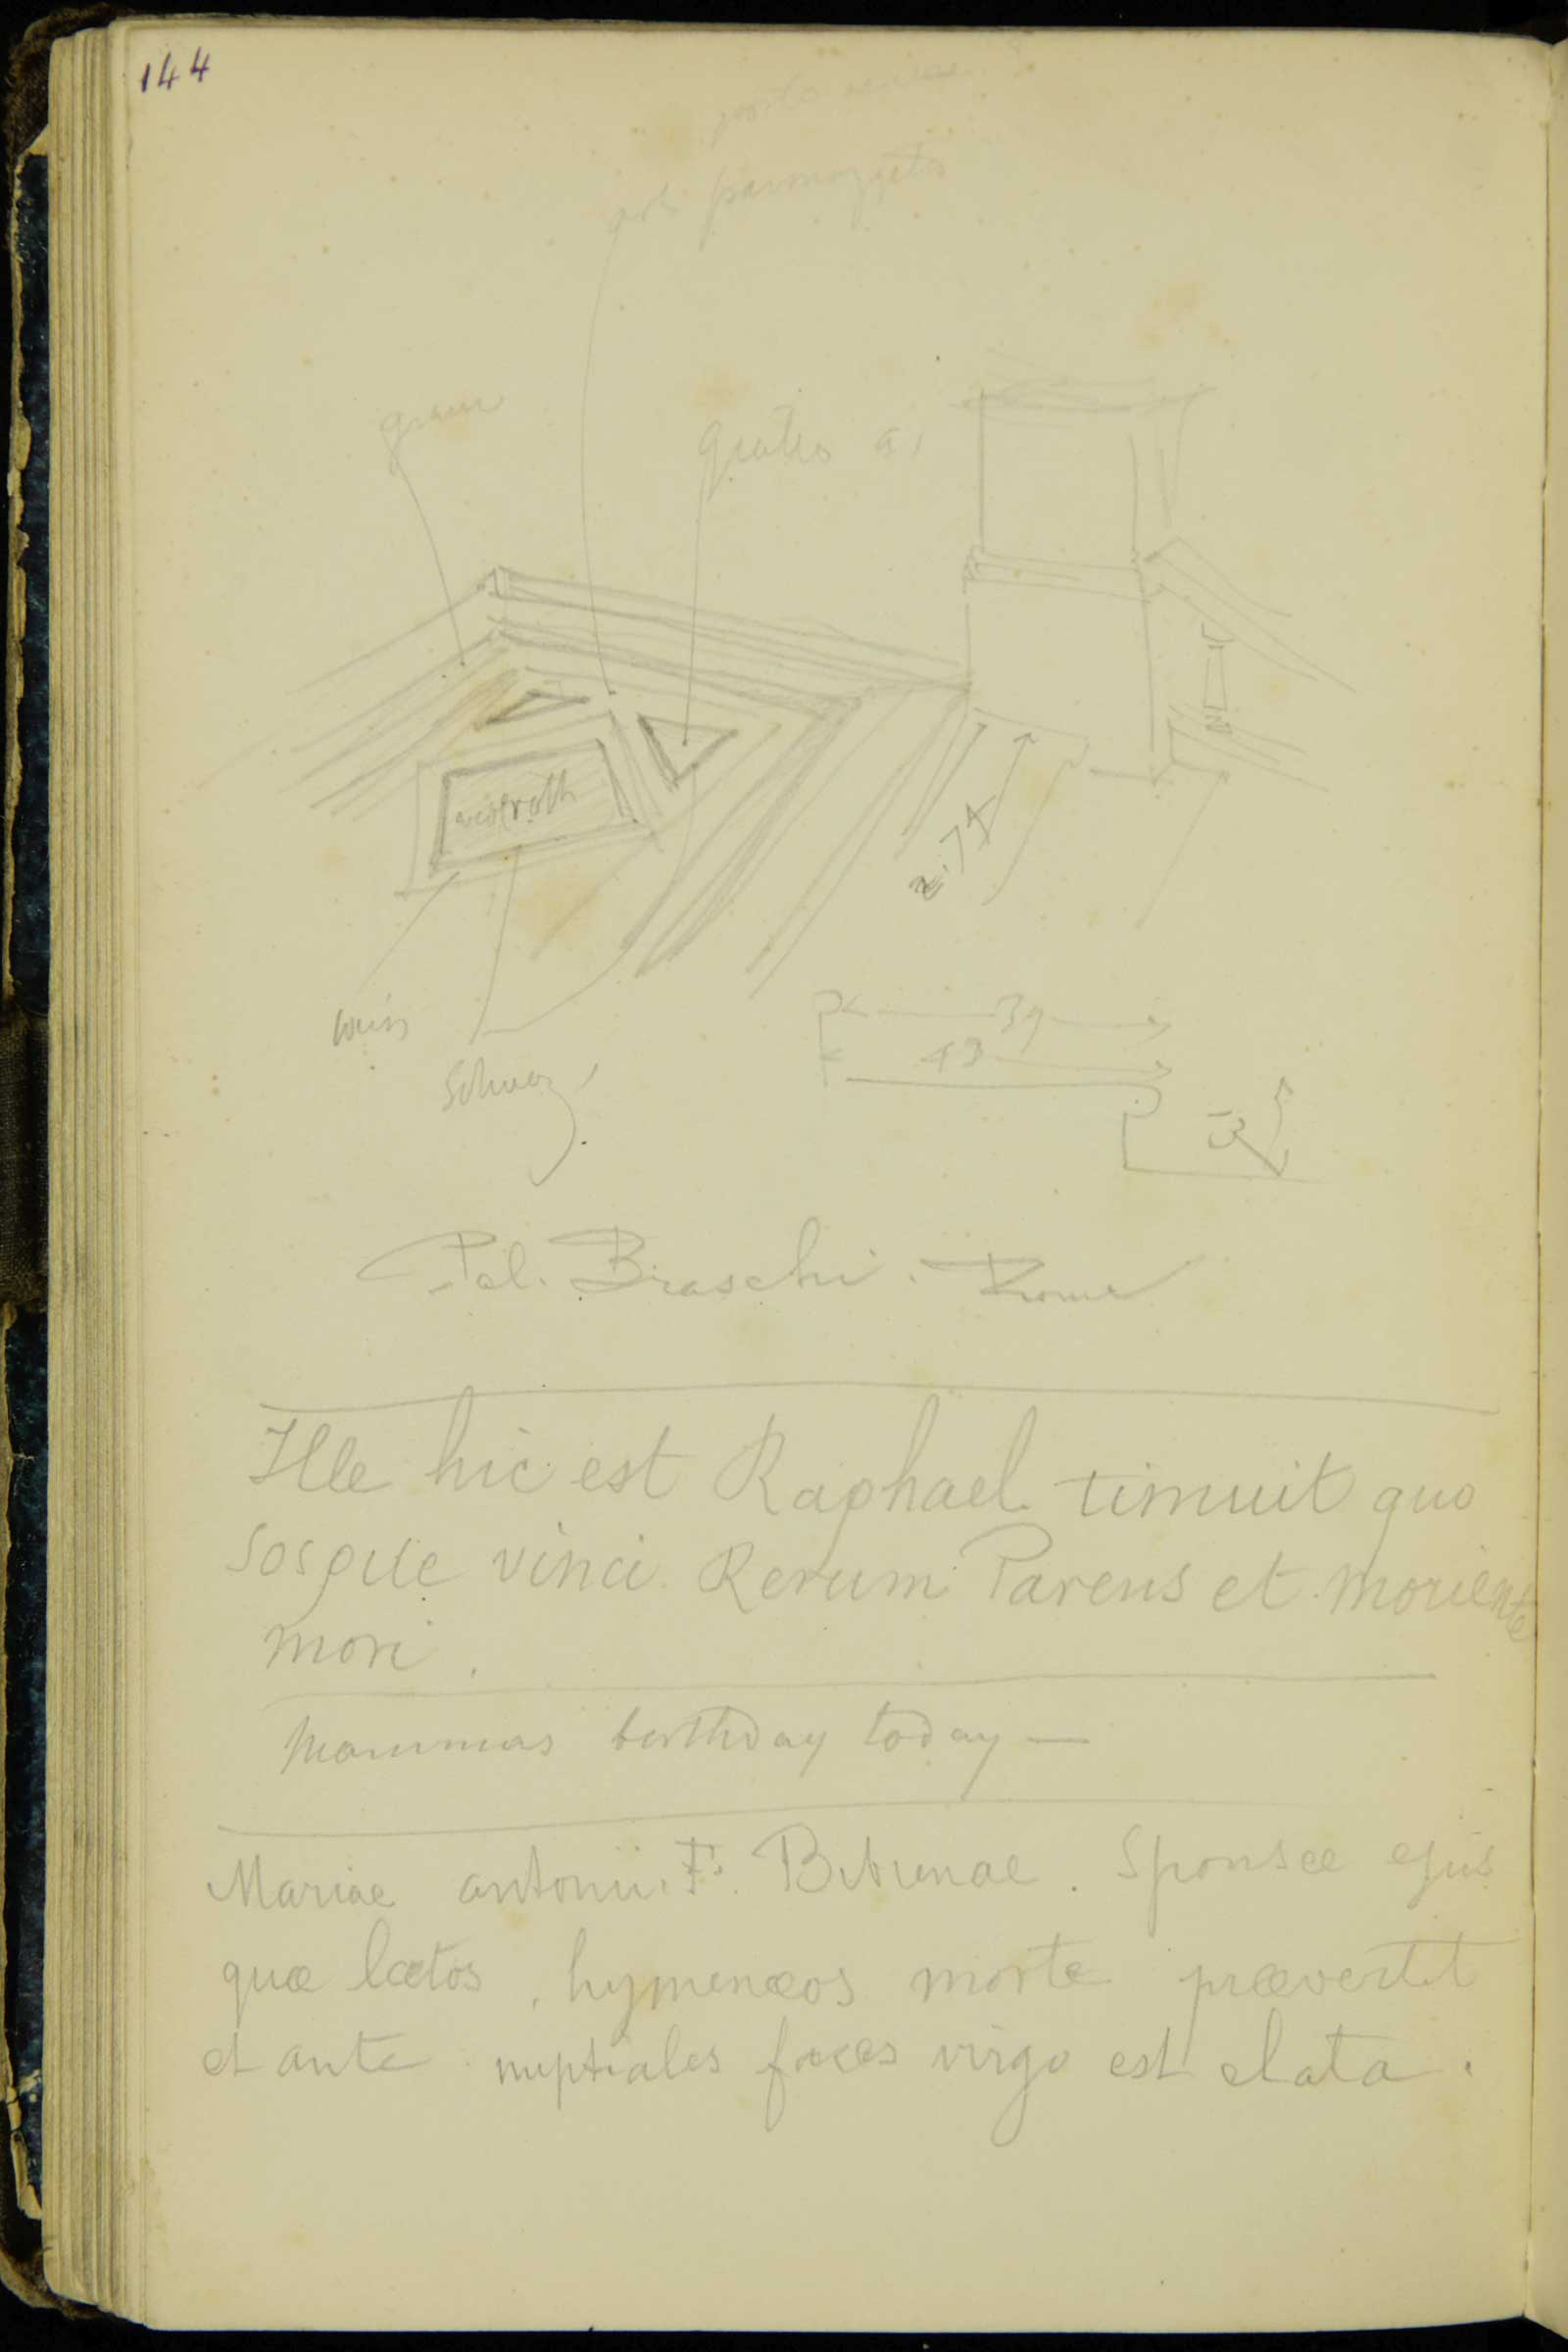 144
pavonazzetto
grau
giallo a,
weissroth
2.74
weiss
Schwarz
39
43
13
Pal. Braschi. Rome
Ille hic est Raphael timuit quo
sospite vinci Rerum Parens et moriente
mori.
Mammas birthday today —
Mariae antonii. F. Bibienae. Sponsae ejus
quæ lætos, hymenæos morte prævertit
et ante nuptiales faces virgo est elata.